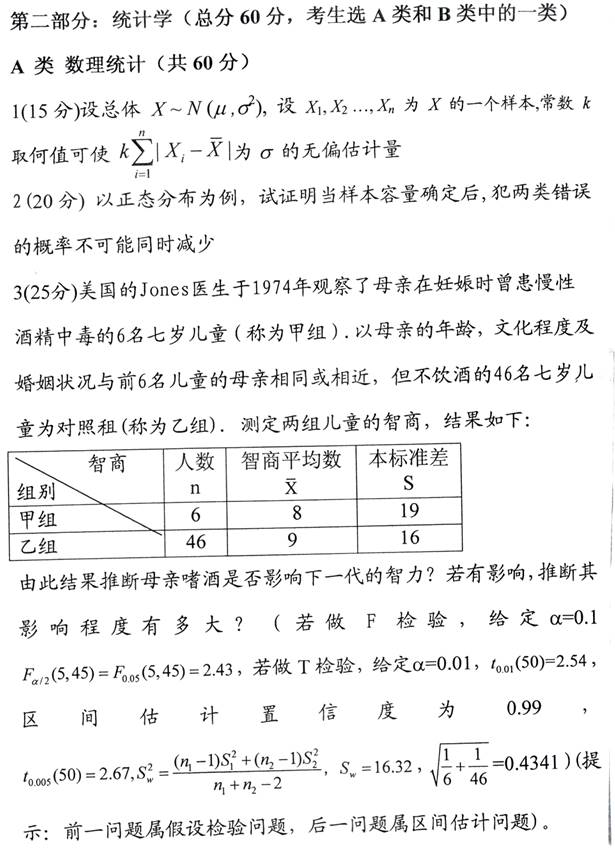 第二部分：统计学（总分 60 分，考生选 A 类和 B 类中的一类）
A 类 数理统计（共 60 分）
1(15 分)设总体 X ~ N (μ ,σ²), 设 X₁, X₂ …, Xₙ 为 X 的一个样本,常数 k
取何值可使 k∑ᵢ₌₁ⁿ| Xᵢ − X̄ |为 σ 的无偏估计量
2 (20 分) 以正态分布为例，试证明当样本容量确定后, 犯两类错误
的概率不可能同时减少
3(25分)美国的Jones医生于1974年观察了母亲在妊娠时曾患慢性
酒精中毒的6名七岁儿童（称为甲组）.以母亲的年龄，文化程度及
婚姻状况与前6名儿童的母亲相同或相近，但不饮酒的46名七岁儿
童为对照租(称为乙组). 测定两组儿童的智商，结果如下：
智商 人数 智商平均数 本标准差
组别 n X̄ S
甲组 6 8 19
乙组 46 9 16
由此结果推断母亲嗜酒是否影响下一代的智力？若有影响,推断其
影响程度有多大？（若做 F 检验，给定 α=0.1
F_{α/2}(5,45) = F₀.₀₅(5,45) = 2.43，若做 T 检验，给定α=0.01，t₀.₀₁(50)=2.54，
区间估计置信度为 0.99，
t₀.₀₀₅(50) = 2.67, S_w² = ((n₁−1)S₁² + (n₂−1)S₂²)/(n₁ + n₂ − 2)，S_w = 16.32，√(1/6 + 1/46)=0.4341）(提
示：前一问题属假设检验问题，后一问题属区间估计问题)。